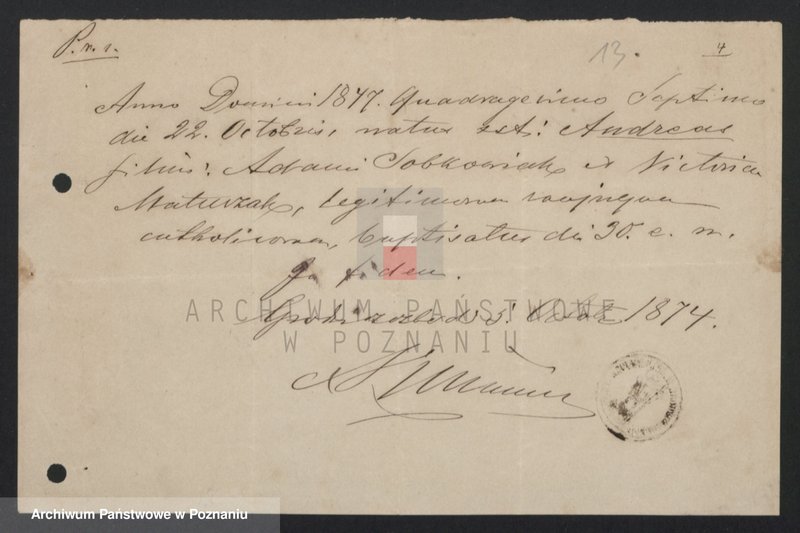 P. n. 1.
13.
4
Anno Domini 1847. Quadragesimo Septimo
die 22. Octobris, natus est: Andreas
filius: Adami Sobkowiak et Victoria
Matuszak, legitimorum conjugum
catholicorum, baptisatus die 30. c. m.
In fidem.
d. 5 1874.
ARCHIWUM PAŃSTWOWE
W POZNANIU
Archiwum Państwowe w Poznaniu